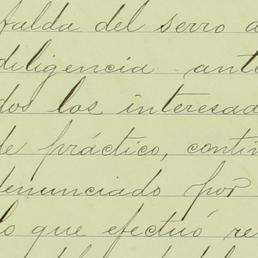 falda del serro a
diligencia ante
dos los interesad
de práctico, contin
denunciado por
lo que efectuó re